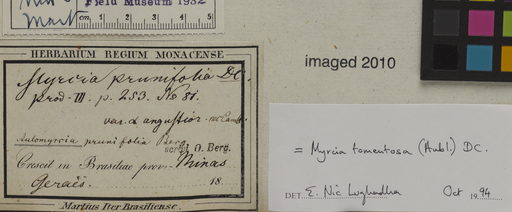 Field Museum 1982
cm 1 2 3 4 5
imaged 2010
HERBARIUM REGIUM MONACENSE
Myrcia prunifolia DC.
prod. III. p. 253. No 81.
var. α angustior
Aulomyrcia prunifolia Berg
scrips. O. Berg.
Crescit in Brasiliae prov. Minas
Geraës. 18
Martius Iter Brasiliense.
= Myrcia tomentosa (Aubl.) DC.
DET. E. Nic Lughadha Oct 1994